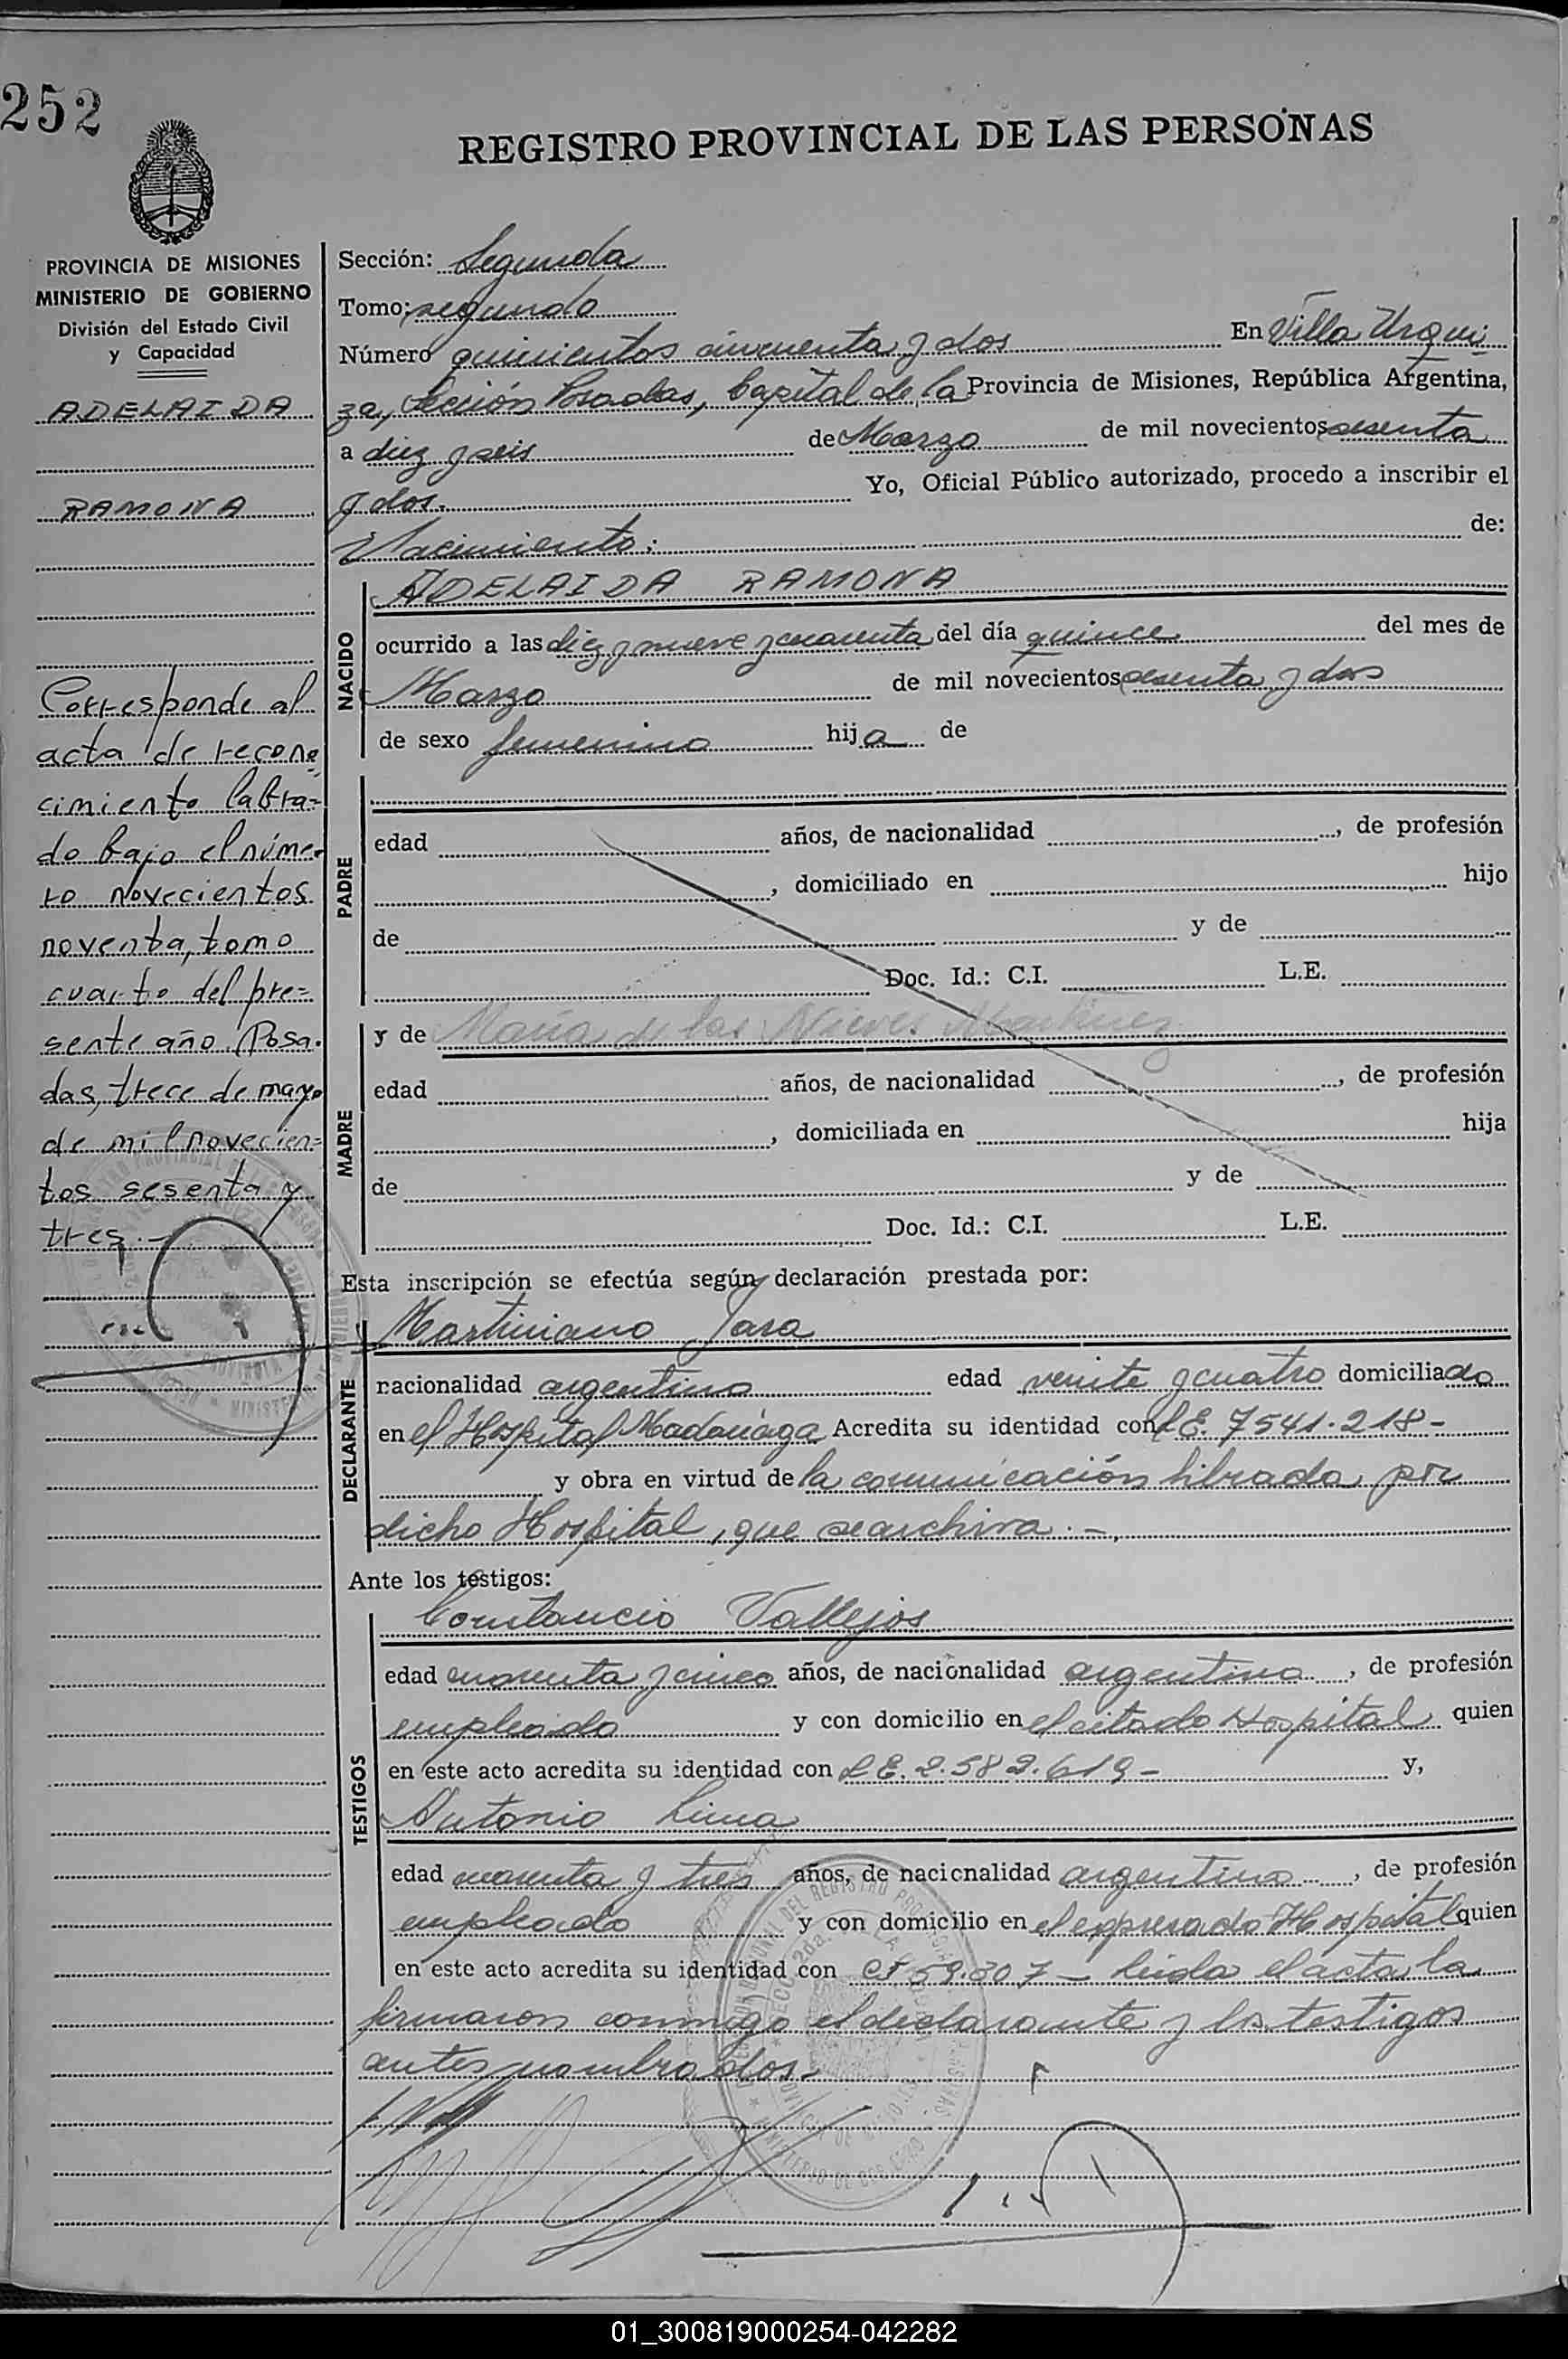 252
REGISTRO PROVINCIAL DE LAS PERSONAS
PROVINCIA DE MISIONES
MINISTERIO DE GOBIERNO
División del Estado Civil
y Capacidad
ADELAIDA
RAMONA
Corresponde al
acta de recono
cimiento labra=
do bajo el núme-
ro novecientos
noventa, tomo
cuarto del pre=
sente año. Posa-
das, trece de mayo
de mil novecien=
tos sesenta y
tres.-
Sección: Segunda
Tomo: segundo
Número quinientos cincuenta y dos En Villa Urqui
za, Sección Posadas, Capital de la Provincia de Misiones, República Argentina,
a diez y seis de Marzo de mil novecientos sesenta
y dos. Yo, Oficial Público autorizado, procedo a inscribir el
Nacimiento: de:
NACIDO
ADELAIDA RAMONA
ocurrido a las diez y nueve y cuarenta del día quince del mes de
Marzo de mil novecientos sesenta y dos
de sexo femenino hija de
PADRE
edad años, de nacionalidad , de profesión
, domiciliado en hijo
de y de
Doc. Id.: C.I. L.E.
MADRE
y de María de las Nieves Martínez
edad años, de nacionalidad , de profesión
, domiciliada en hija
de y de
Doc. Id.: C.I. L.E.
Esta inscripción se efectúa según declaración prestada por:
DECLARANTE
Martiniano Jara
nacionalidad argentino edad veinte y cuatro domiciliado
en el Hospital Madariaga Acredita su identidad con L.E. 7541.218-
y obra en virtud de la comunicación librada por
dicho Hospital, que se archiva.-
Ante los testigos:
TESTIGOS
Constancio Vallejos
edad cuarenta y cinco años, de nacionalidad argentino , de profesión
empleado y con domicilio en el citado Hospital quien
en este acto acredita su identidad con L.E. 2.582.619- y,
Antonio Lima
edad cuarenta y tres años, de nacionalidad argentino , de profesión
empleado y con domicilio en el expresado Hospital quien
en este acto acredita su identidad con CI 59.307- Leída el acta la
firmaron conmigo el declarante y los testigos
antes nombrados.-
01_300819000254-042282